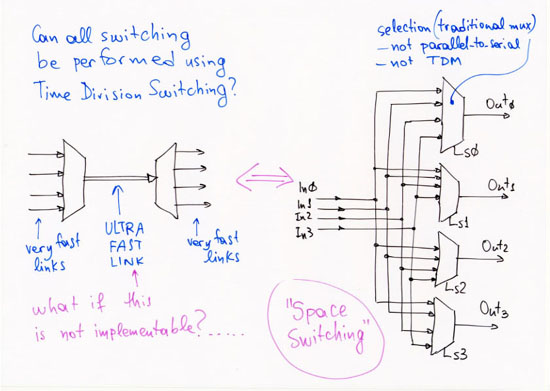 Can all switching
be performed using
Time Division Switching?
selection (traditional mux)
– not parallel-to-serial
– not TDM
very fast
links
ULTRA
FAST
LINK
very fast
links
what if this
is not implementable?......
In0
In1
In2
In3
Out0
S0
Out1
S1
Out2
S2
Out3
S3
"Space
Switching"